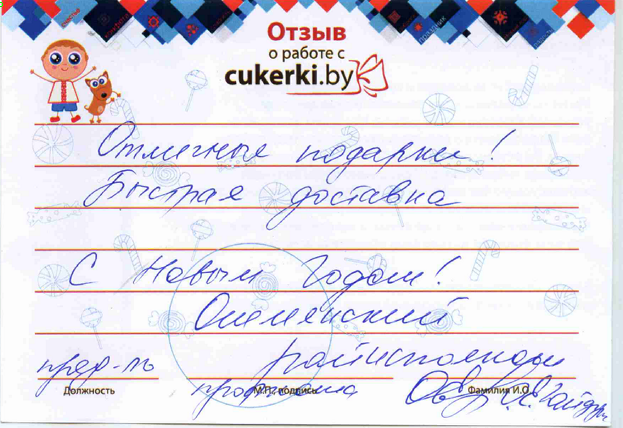 Отзыв
о работе с
cukerki.by
Отличные подарки!
Быстрая доставка
С Новым Годом!
райисполком
пред-ль
профкома
Должность
М.П., подпись
Фамилия И.О.